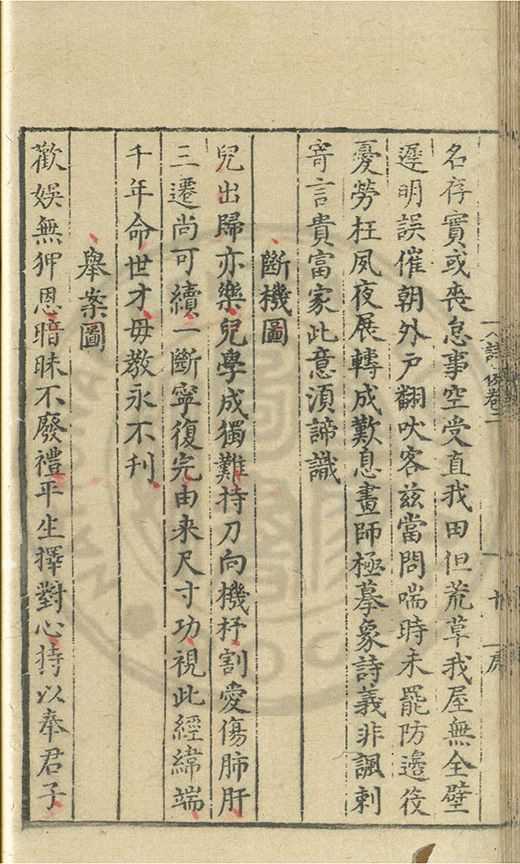 名存實或喪息事空受直我田但荒草我屋無全壁
遲明誤催朝外户翻吠客兹當問喘時未罷防邊役
憂勞枉夙夜展轉成歎息畫師極摹象詩義非諷刺
寄言貴富家此意湏諦識
斷機圖
兒出歸亦樂兒學成獨難持刀向機杼割愛傷肺肝
三遷尚可續一斷寧復完由来尺寸功視此經緯端
千年命世才毋教永不刋
舉案圖
歡娛無狎恩暗昧不廢禮平生擇對心持以奉君子